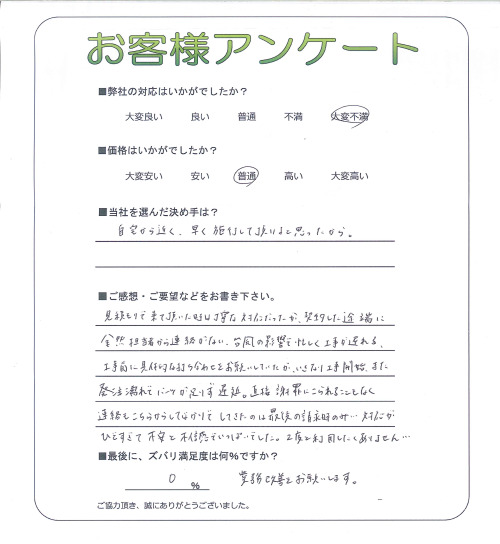 お客様アンケート
■弊社の対応はいかがでしたか？
大変良い 良い 普通 不満 大変不満
■価格はいかがでしたか？
大変安い 安い 普通 高い 大変高い
■当社を選んだ決め手は？
自宅から近く、早く施行して頂けると思ったから。
■ご感想・ご要望などをお書き下さい。
見積もりで来て頂いた時は丁寧な対応だったが、契約した途端に
全然担当者から連絡がない、台風の影響で忙しく工事が遅れる、
工事前に具体的な打ち合わせをお願いしていたが、いきなり工事開始、また
発注漏れでパーツが足りず遅延。直接謝罪に来られることもなく
連絡もこちらからしてばかりで してきたのは最後の請求時のみ…対応が
ひどすぎて不安と不信感でいっぱいでした。2度と利用したくありません…
■最後に、ズバリ満足度は何%ですか？
0 % 業務改善をお願いします。
ご協力頂き、誠にありがとうございました。